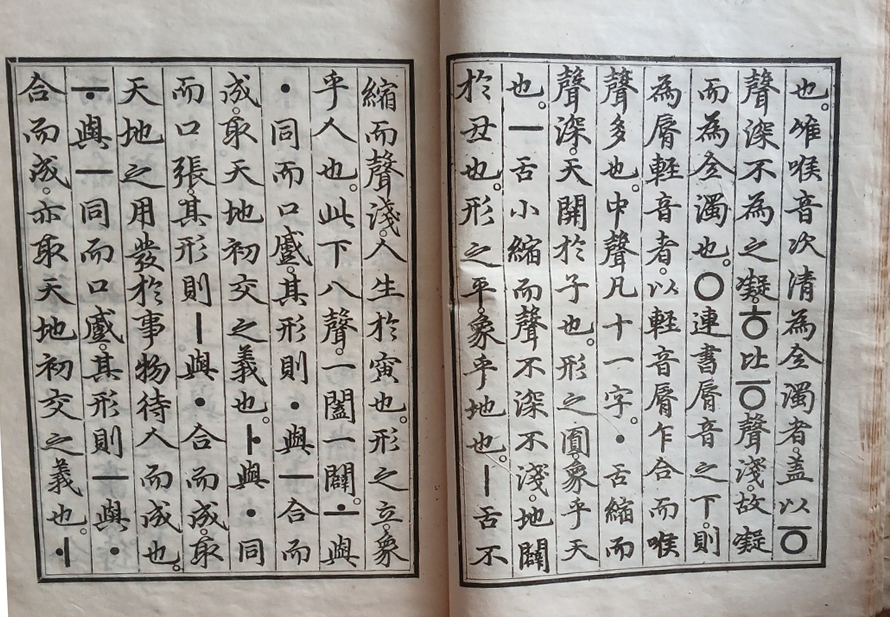 也。唯喉音次清為全濁者。盖以ㆆ
聲深不為之凝。ㅎ比ㆆ聲淺。故凝
而為全濁也。ㅇ連書脣音之下。則
為脣輕音者。以輕音脣乍合而喉
聲多也。中聲凡十一字。ㆍ舌縮而
聲深。天開於子也。形之圎。象乎天
也。ㅡ舌小縮而聲不深不淺。地闢
於丑也。形之平。象乎地也。ㅣ舌不
縮而聲淺。人生於寅也。形之立。象
乎人也。此下八聲。一闔一闢。ㅗ與
ㆍ同而口蹙。其形則ㆍ與ㅡ合而
成。取天地初交之義也。ㅏ與ㆍ同
而口張。其形則ㅣ與ㆍ合而成。取
天地之用發於事物待人而成也。
ㅜ與ㅡ同而口蹙。其形則ㅡ與ㆍ
合而成。亦取天地初交之義也。ㅓ